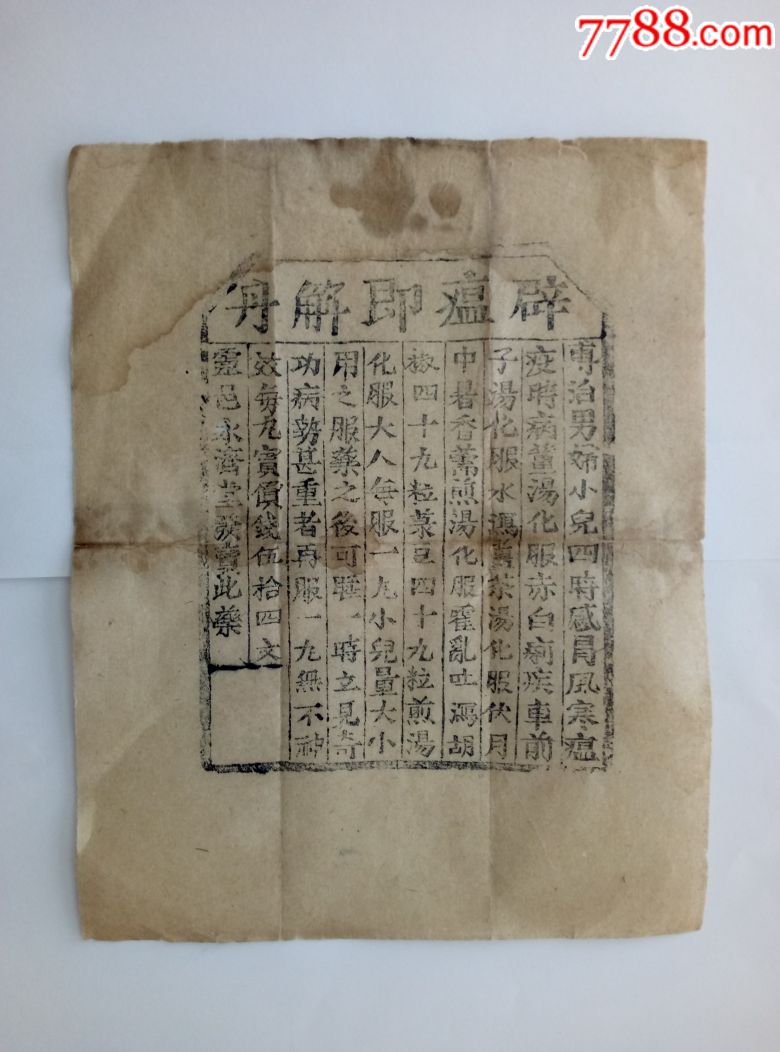 7788.com
辟瘟即解丹
專治男婦小兒四時感冒風寒瘟
疫時病薑湯化服赤白痢疾車前
子湯化服水瀉舊茶湯化服伏月
中暑香薷煎湯化服霍亂吐瀉胡
椒四十九粒菉豆四十九粒煎湯
化服大人每服一丸小兒量大小
用之服藥之後可睡一時立見奇
功病勢甚重者再服一丸無不神
效每丸實價錢伍拾四文
靈邑永濟堂發賣此藥